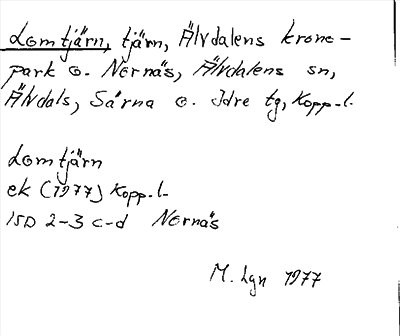 Lomtjärn, tjärn, Älvdalens krono-
park o. Nornäs, Älvdalens sn,
Älvdals, Särna o. Idre tg, Kopp.l.
Lomtjärn
ek (1977) Kopp.l.
15D 2-3 c-d Nornäs
M. Lgn 1977